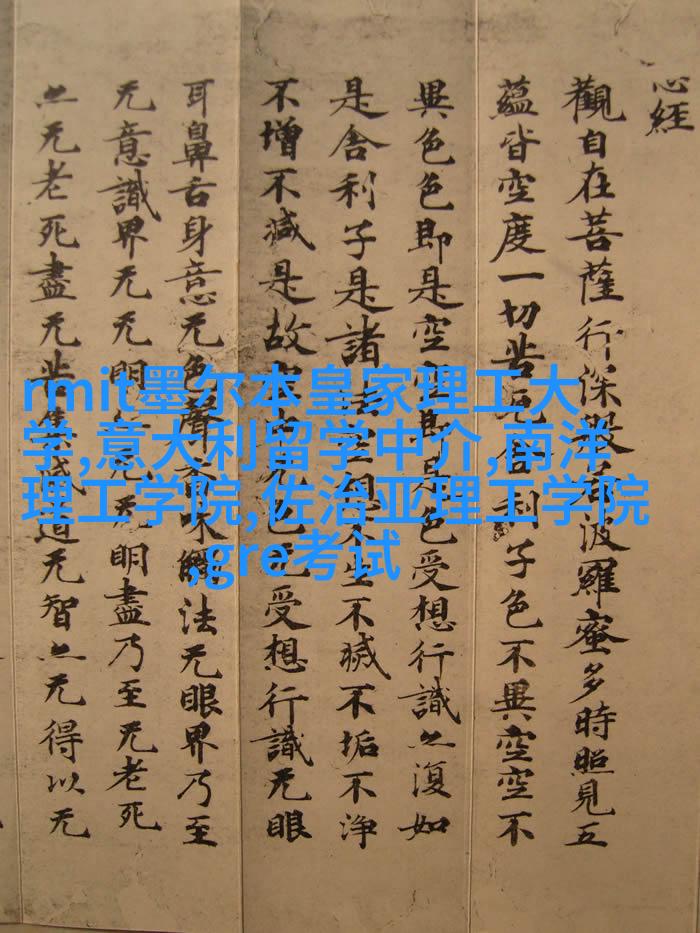 心經
觀自在菩薩行深般若波羅蜜多時照見五
蘊皆空度一切苦厄舍利子色不異空空不
異色色即是空空即是色受想行識亦復如
是舍利子是諸法空想不生不滅不垢不淨
不增不減是故空中无色无受想行識无眼
耳鼻舌身意无色聲香味觸法无眼界乃至
无意識界无无明亦无无明盡乃至无老死
亦无老死盡无苦集滅道无智亦无得以无
rmit墨尔本皇家理工大
学,意大利留学中介,南洋
理工学院,佐治亚理工学院
,gre考试